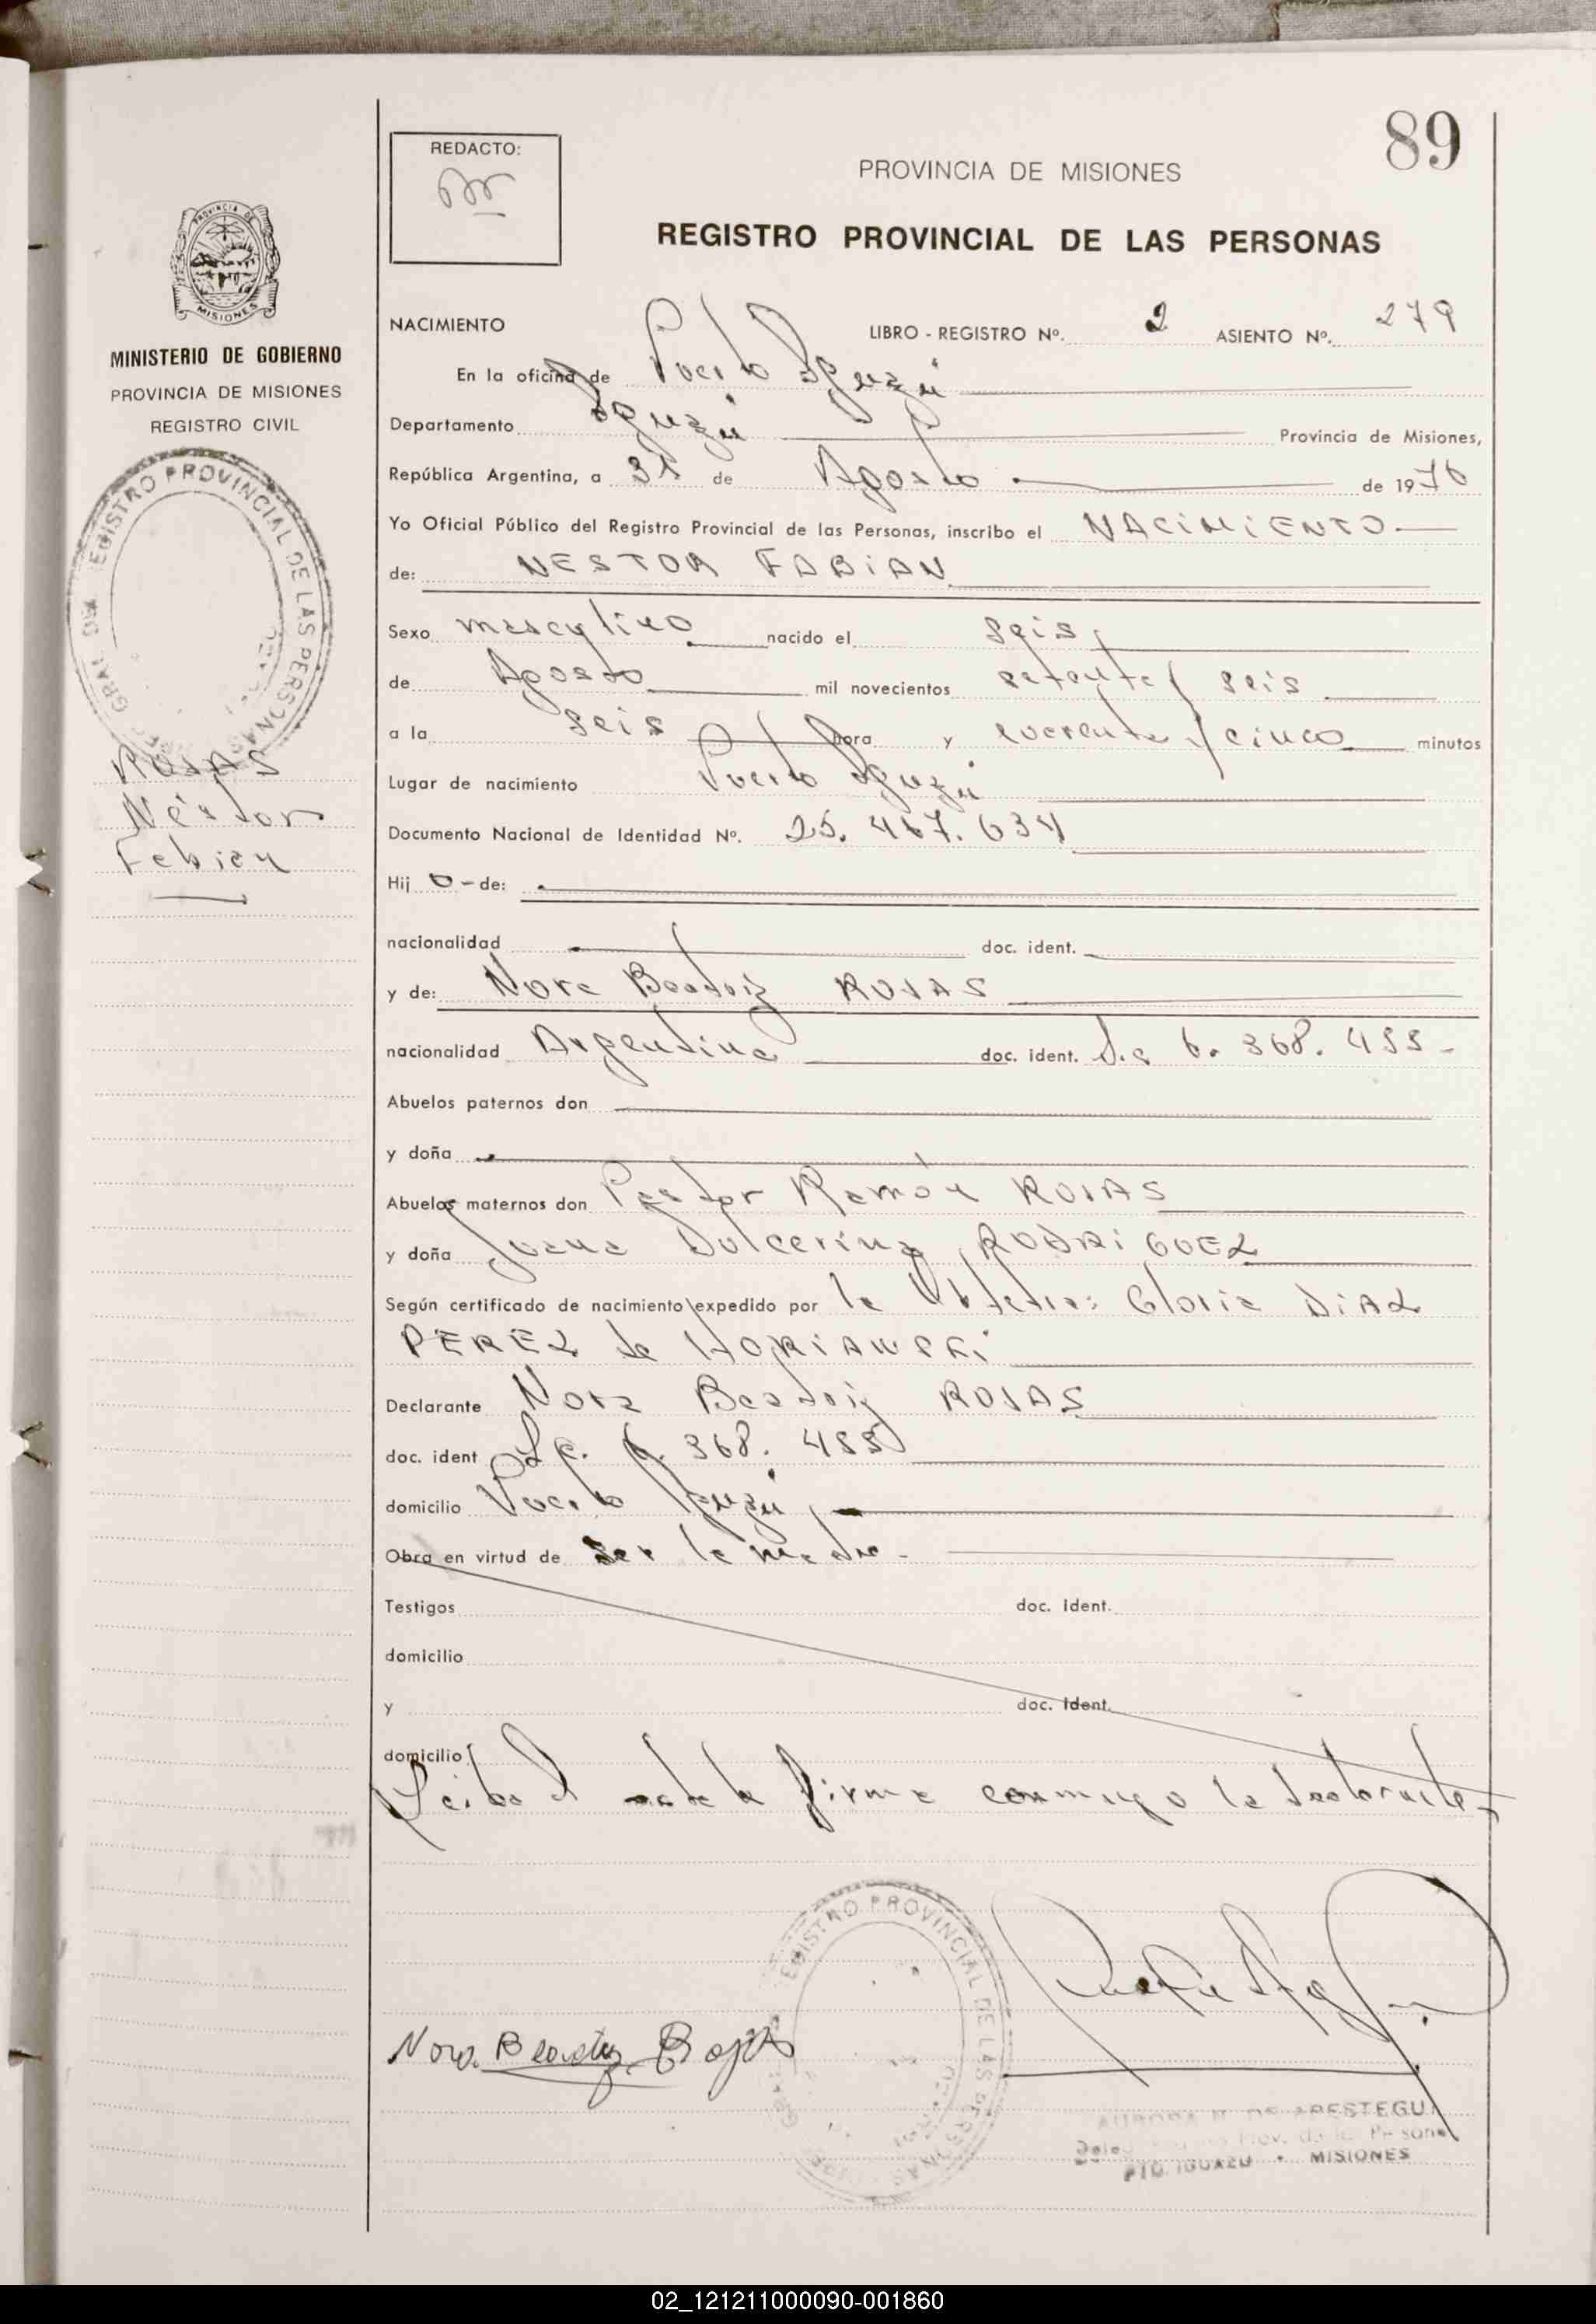 89
REDACTO:
PROVINCIA DE MISIONES
REGISTRO PROVINCIAL DE LAS PERSONAS
PROVINCIA DE
MISIONES
MINISTERIO DE GOBIERNO
PROVINCIA DE MISIONES
REGISTRO CIVIL
REGISTRO PROVINCIAL DE LAS PERSONAS
ROJAS
Néstor
Fabian
NACIMIENTO LIBRO - REGISTRO Nº. 2 ASIENTO Nº. 279
En la oficina de Puerto Iguazú
Departamento Iguazú Provincia de Misiones,
República Argentina, a 31 de Agosto de 1976
Yo Oficial Público del Registro Provincial de las Personas, inscribo el NACIMIENTO
de: NESTOR FABIAN
Sexo masculino nacido el seis
de Agosto mil novecientos setenta y seis
a la seis hora y cuarenta y cinco minutos
Lugar de nacimiento Puerto Iguazú
Documento Nacional de Identidad Nº. 25.467.634
Hij o - de:
nacionalidad doc. ident.
y de: Nora Beatriz ROJAS
nacionalidad Argentina doc. ident. L.c 6. 368. 455 -
Abuelos paternos don
y doña
Abuelos maternos don Pastor Ramón ROJAS
y doña Juana Dulcerina RODRIGUEZ
Según certificado de nacimiento expedido por la Obstetra: Gloria DIAZ
PEREZ de
Declarante Nora Beatriz ROJAS
doc. ident L.c. 6. 368. 455
domicilio Puerto Iguazú
Obra en virtud de ser la madre -
Testigos doc. ident.
domicilio
y doc. ident.
domicilio
Leida el acta la firma conmigo la declarante
Nora Beatriz Rojas
REGISTRO PROVINCIAL DE LAS PERSONAS
AURORA DE ARESTEGUI
PTO. IGUAZU - MISIONES
02_121211000090-001860